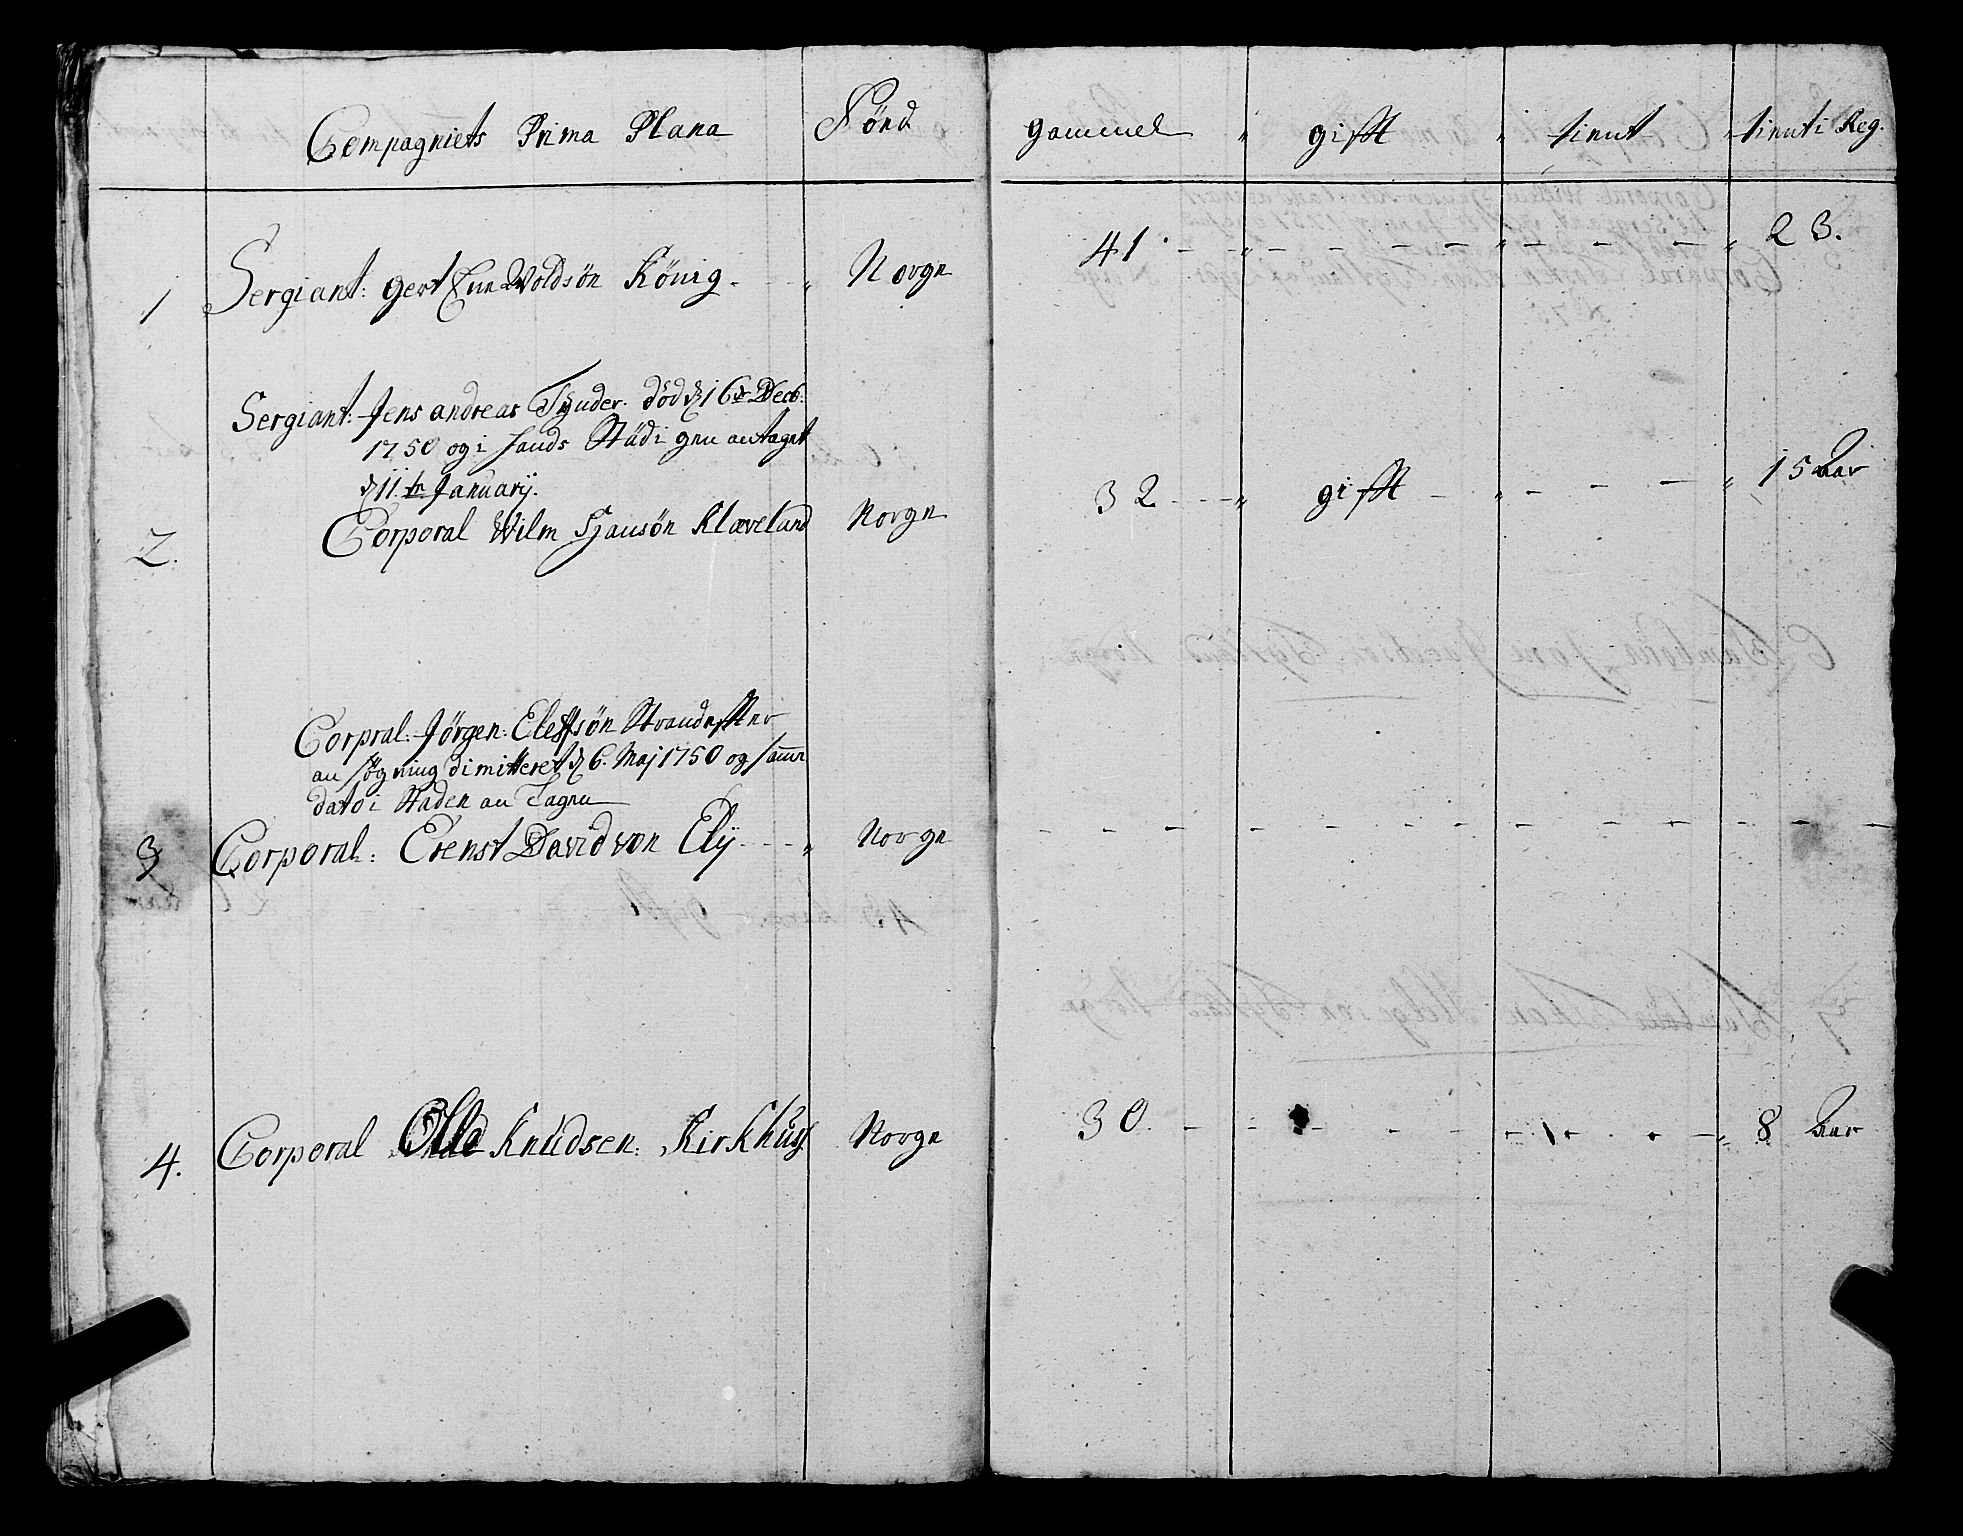 Compagniets Prima Plana Fönd gammel gifft tinnt tinnt i Reg.
1 Sergiant: Gert Enwoldsön König Norge 41 23.
Sergiant: Jens andreas Tÿnder. död d 16de Decb.
1750 og i hands Städ igen antaget
d 11te Januarij.
2. Corporal Wilm Hansön Klæveland Norge 32 gifft 15 Aar
Corpral: Jörgen Eleffsön Strand effter
an søgning dimitteret d 6. Maj 1750 og samme
dato i Staden an Tagen
3 Corporal: Erenst David von Elÿ Norge
4. Corporal Olle Knudsen Kirkhus Norge 30. 8 Aar